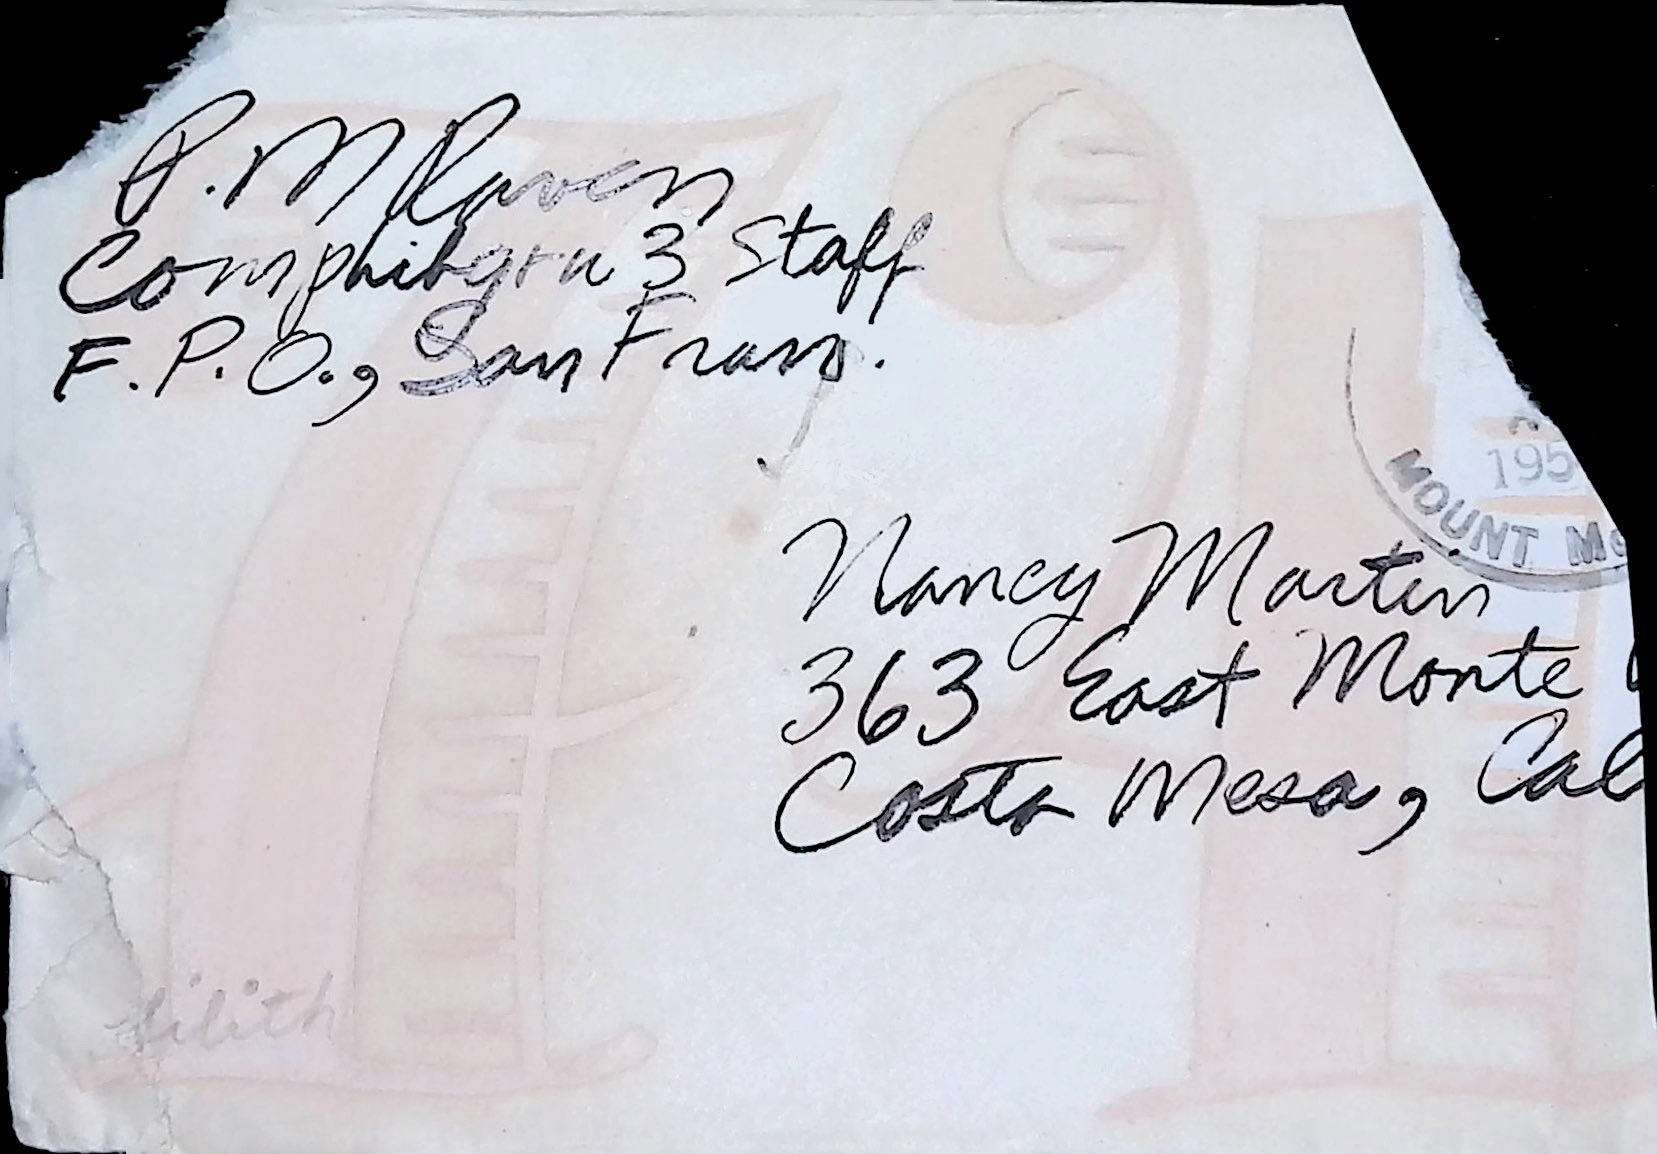 P. M Raven
Comphibgru 3 Staff
F.P.O., San Fran.
195
MOUNT MO
Nancy Martin
363 East Monte
Costa Mesa, Cal
lilith